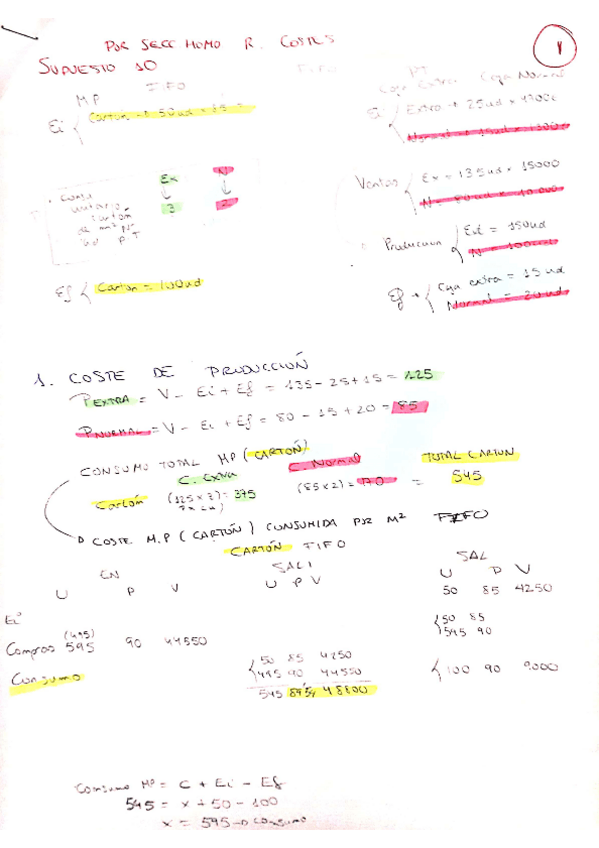 POR SECC HOMO R. COSTES
SUPUESTO 10
1
MP FIFO
FIFO
PT
Caja Extra Caja Normal
Ei { Cartón → 50ud x 85 =
Ei { Extra → 25ud x
Normal → 15ud x
Ventas { Ex = 135ud x 15000
N = 80ud x 10.000
Ex N
3 2
Consu
unitario
cartón
de m² Nº
ud P.T
Producción { Ext = 150ud
N = 100ud
Ef { Cartón = 100ud
Ef → { Caja extra = 15ud
Normal = 20ud
1. COSTE DE PRODUCCIÓN
P EXTRA = V - Ei + Ef = 135 - 25 + 15 = 125
P NORMAL = V - Ei + Ef = 80 - 15 + 20 = 85
CONSUMO TOTAL MP (CARTÓN)
C. Extra C. Normal TOTAL CARTON
Cartón (125 x 3) = 375 (85 x 2) = 170 = 545
COSTE M.P (CARTÓN) CONSUMIDA POR M² FIFO
CARTÓN FIFO
EN SALI SAL
U P V U P V U P V
Ei 50 85 4250
(495)
Compras 595 90 44550 { 50 85
545 90
Consumo { 50 85 4250
495 90 44550 { 100 90 9000
545 89'54 48800
Consumo Mº = C + Ei - Ef
545 = x + 50 - 100
x = 595 → consumo